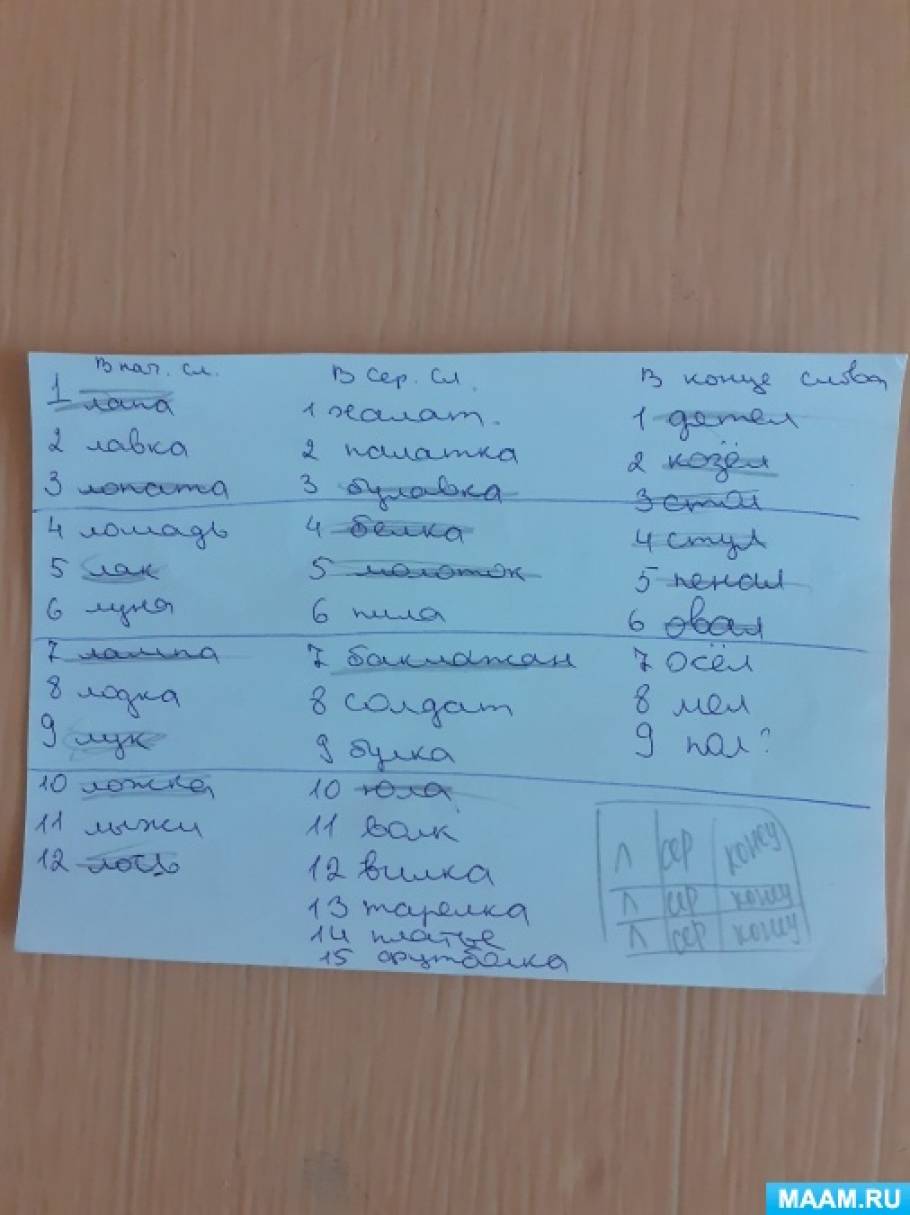 В нач. сл.
1 лапа
2 лавка
3 лопата
4 лошадь
5 лак
6 луна
7 лампа
8 лодка
9 лук
10 ложка
11 лыжи
12 лось
В сер. сл.
1 халат.
2 палатка
3 булавка
4 белка
5 молоток
6 пила
7 баклажан
8 солдат
9 булка
10 юла
11 волк
12 вилка
13 тарелка
14 платье
15 футболка
В конце слова
1 детел
2 козёл
3 стол
4 стул
5 пенал
6 овал
7 осёл
8 мел
9 пол?
Л сер
Л сер
Л сер
MAAM.RU